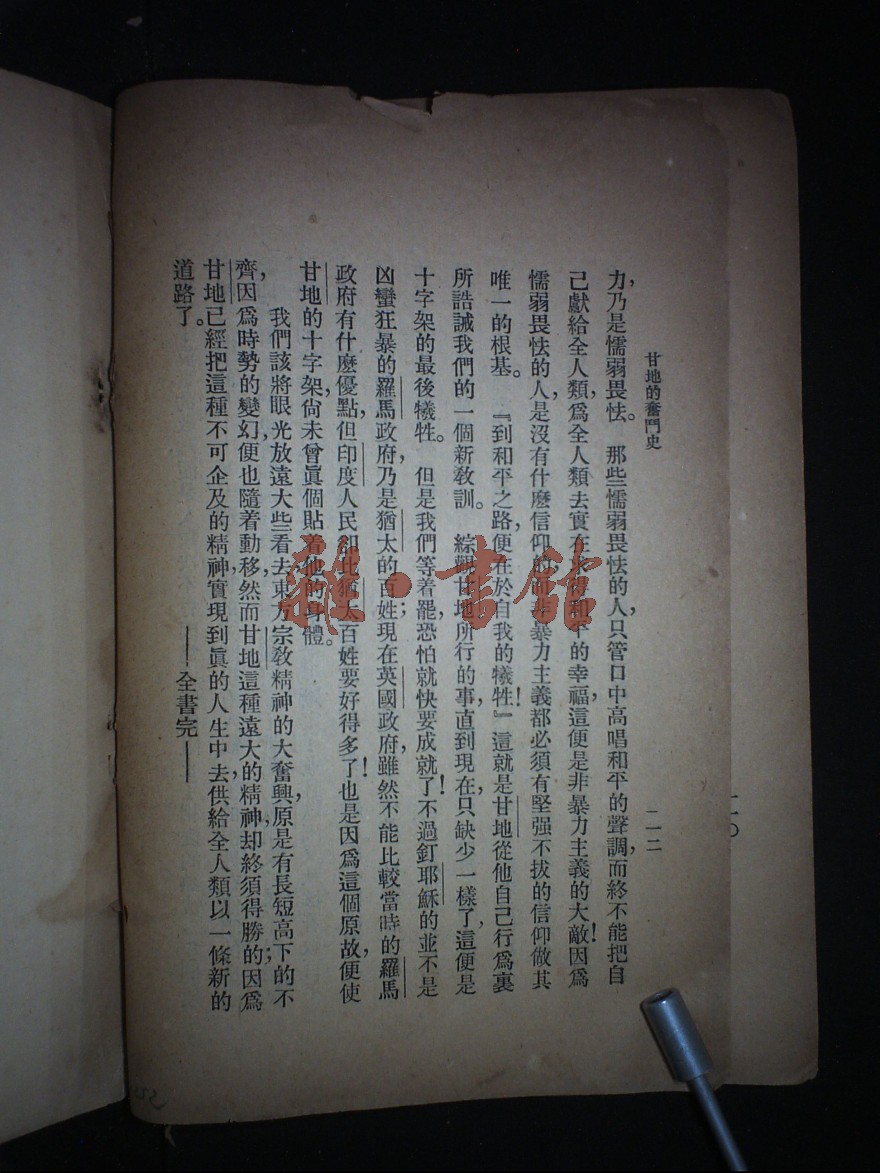 甘地的奮鬥史
二一二
二一〇
力,乃是懦弱畏怯。那些懦弱畏怯的人,只管口中高唱和平的聲調,而終不能把自
己獻給全人類,為全人類去實在求得和平的幸福,這便是非暴力主義的大敵!因爲
懦弱畏怯的人,是沒有什麽信仰的,而非暴力主義都必須有堅强不拔的信仰做其
唯一的根基。『到和平之路,便在於自我的犧牲!』這就是甘地從他自己行爲裏
所誥誡我們的一個新教訓。綜觀甘地所行的事,直到現在,只缺少一樣了,這便是
十字架的最後犧牲。但是我們等着罷,恐怕就快要成就了!不過釘耶穌的並不是
凶蠻狂暴的羅馬政府,乃是猶太的百姓;現在英國政府,雖然不能比較當時的羅馬
政府有什麽優點,但印度人民却比猶太百姓要好得多了!也是因爲這個原故,便使
甘地的十字架尙未曾眞個貼着他的身體。
我們該將眼光放遠大些看去,東方宗敎精神的大奮興,原是有長短高下的不
齊,因爲時勢的變幻,便也隨着動移,然而甘地這種遠大的精神,却終須得勝的;因爲
甘地已經把這種不可企及的精神,實現到眞的人生中去,供給全人類以一條新的
道路了。
——全書完——
雜·書館
152